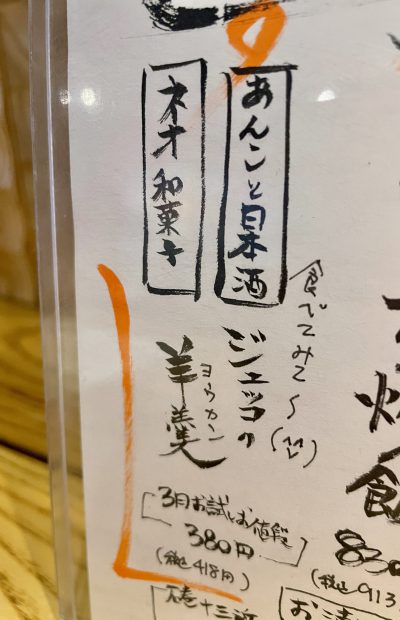 あんこと日本酒
ネオ和菓子
食べてみて〜
ジェッコの
羊羹
ヨウカン
3月お試しお値段
380円
(税込418円)